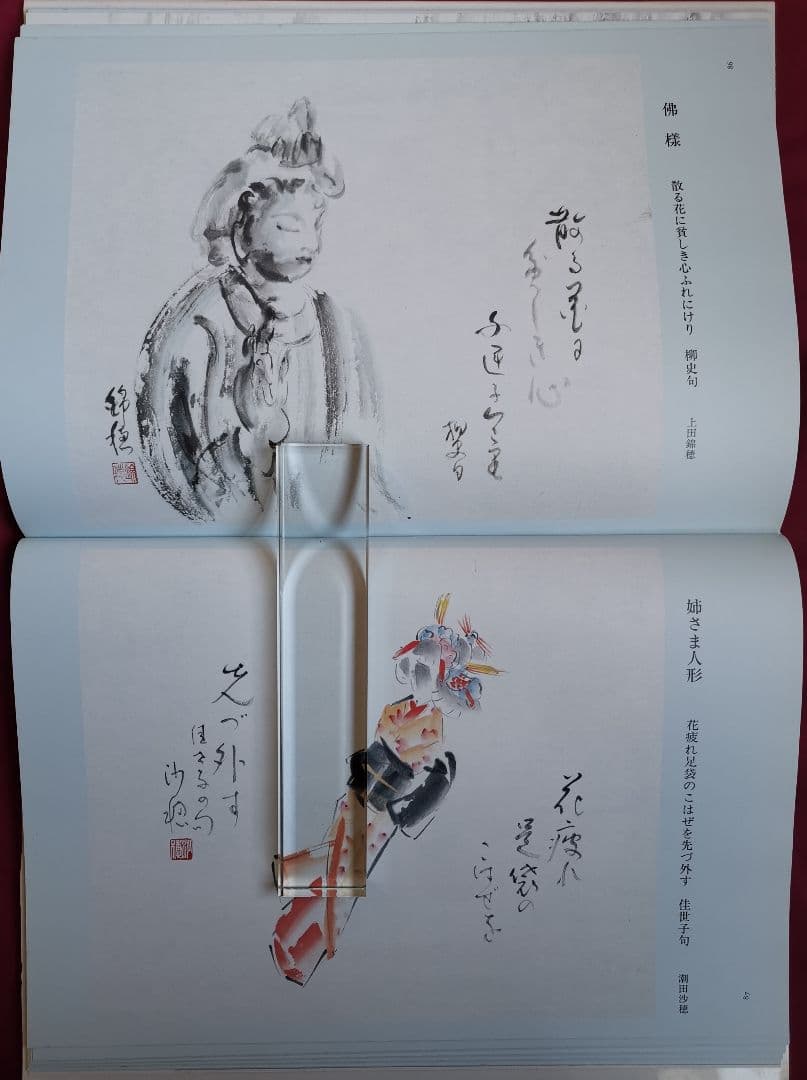 98
佛様
散る花に貧しき心ふれにけり 柳史句
上田錦穂
散る花に
貧しき心
ふ連个里
柳史句
錦穂
姉さま人形
花疲れ足袋のこはぜを先づ外す 佳世子句
潮田沙穂
花疲れ
足袋の
こはぜを
先づ外す
佳世子の句
沙穂